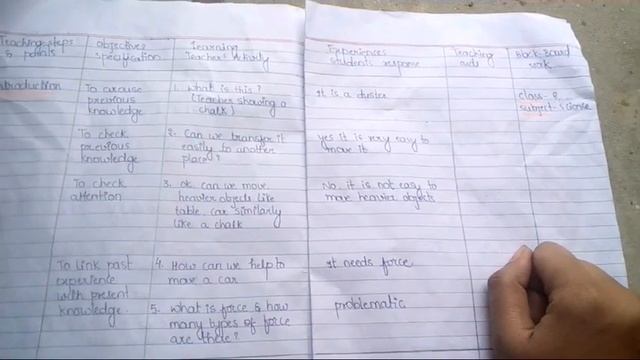 Teaching steps Objectives Learning Experiences Teaching Black Board
& points specification Teacher's Activity students response aids work
Introduction To arouse 1. What is this? It is a duster class-8
previous (Teacher showing a subject-science
knowledge chalk)
To check 2. Can we transfer it yes it is very easy to
previous easily to another move it
knowledge place?
To check 3. ok can we move No, it is not easy to
attention heavier objects like move heavier objects
table, car similarly
like a chalk
To link past 4. How can we help to It needs force
experience move a car
with present 5. What is force & how problematic
knowledge. many types of force
are there?